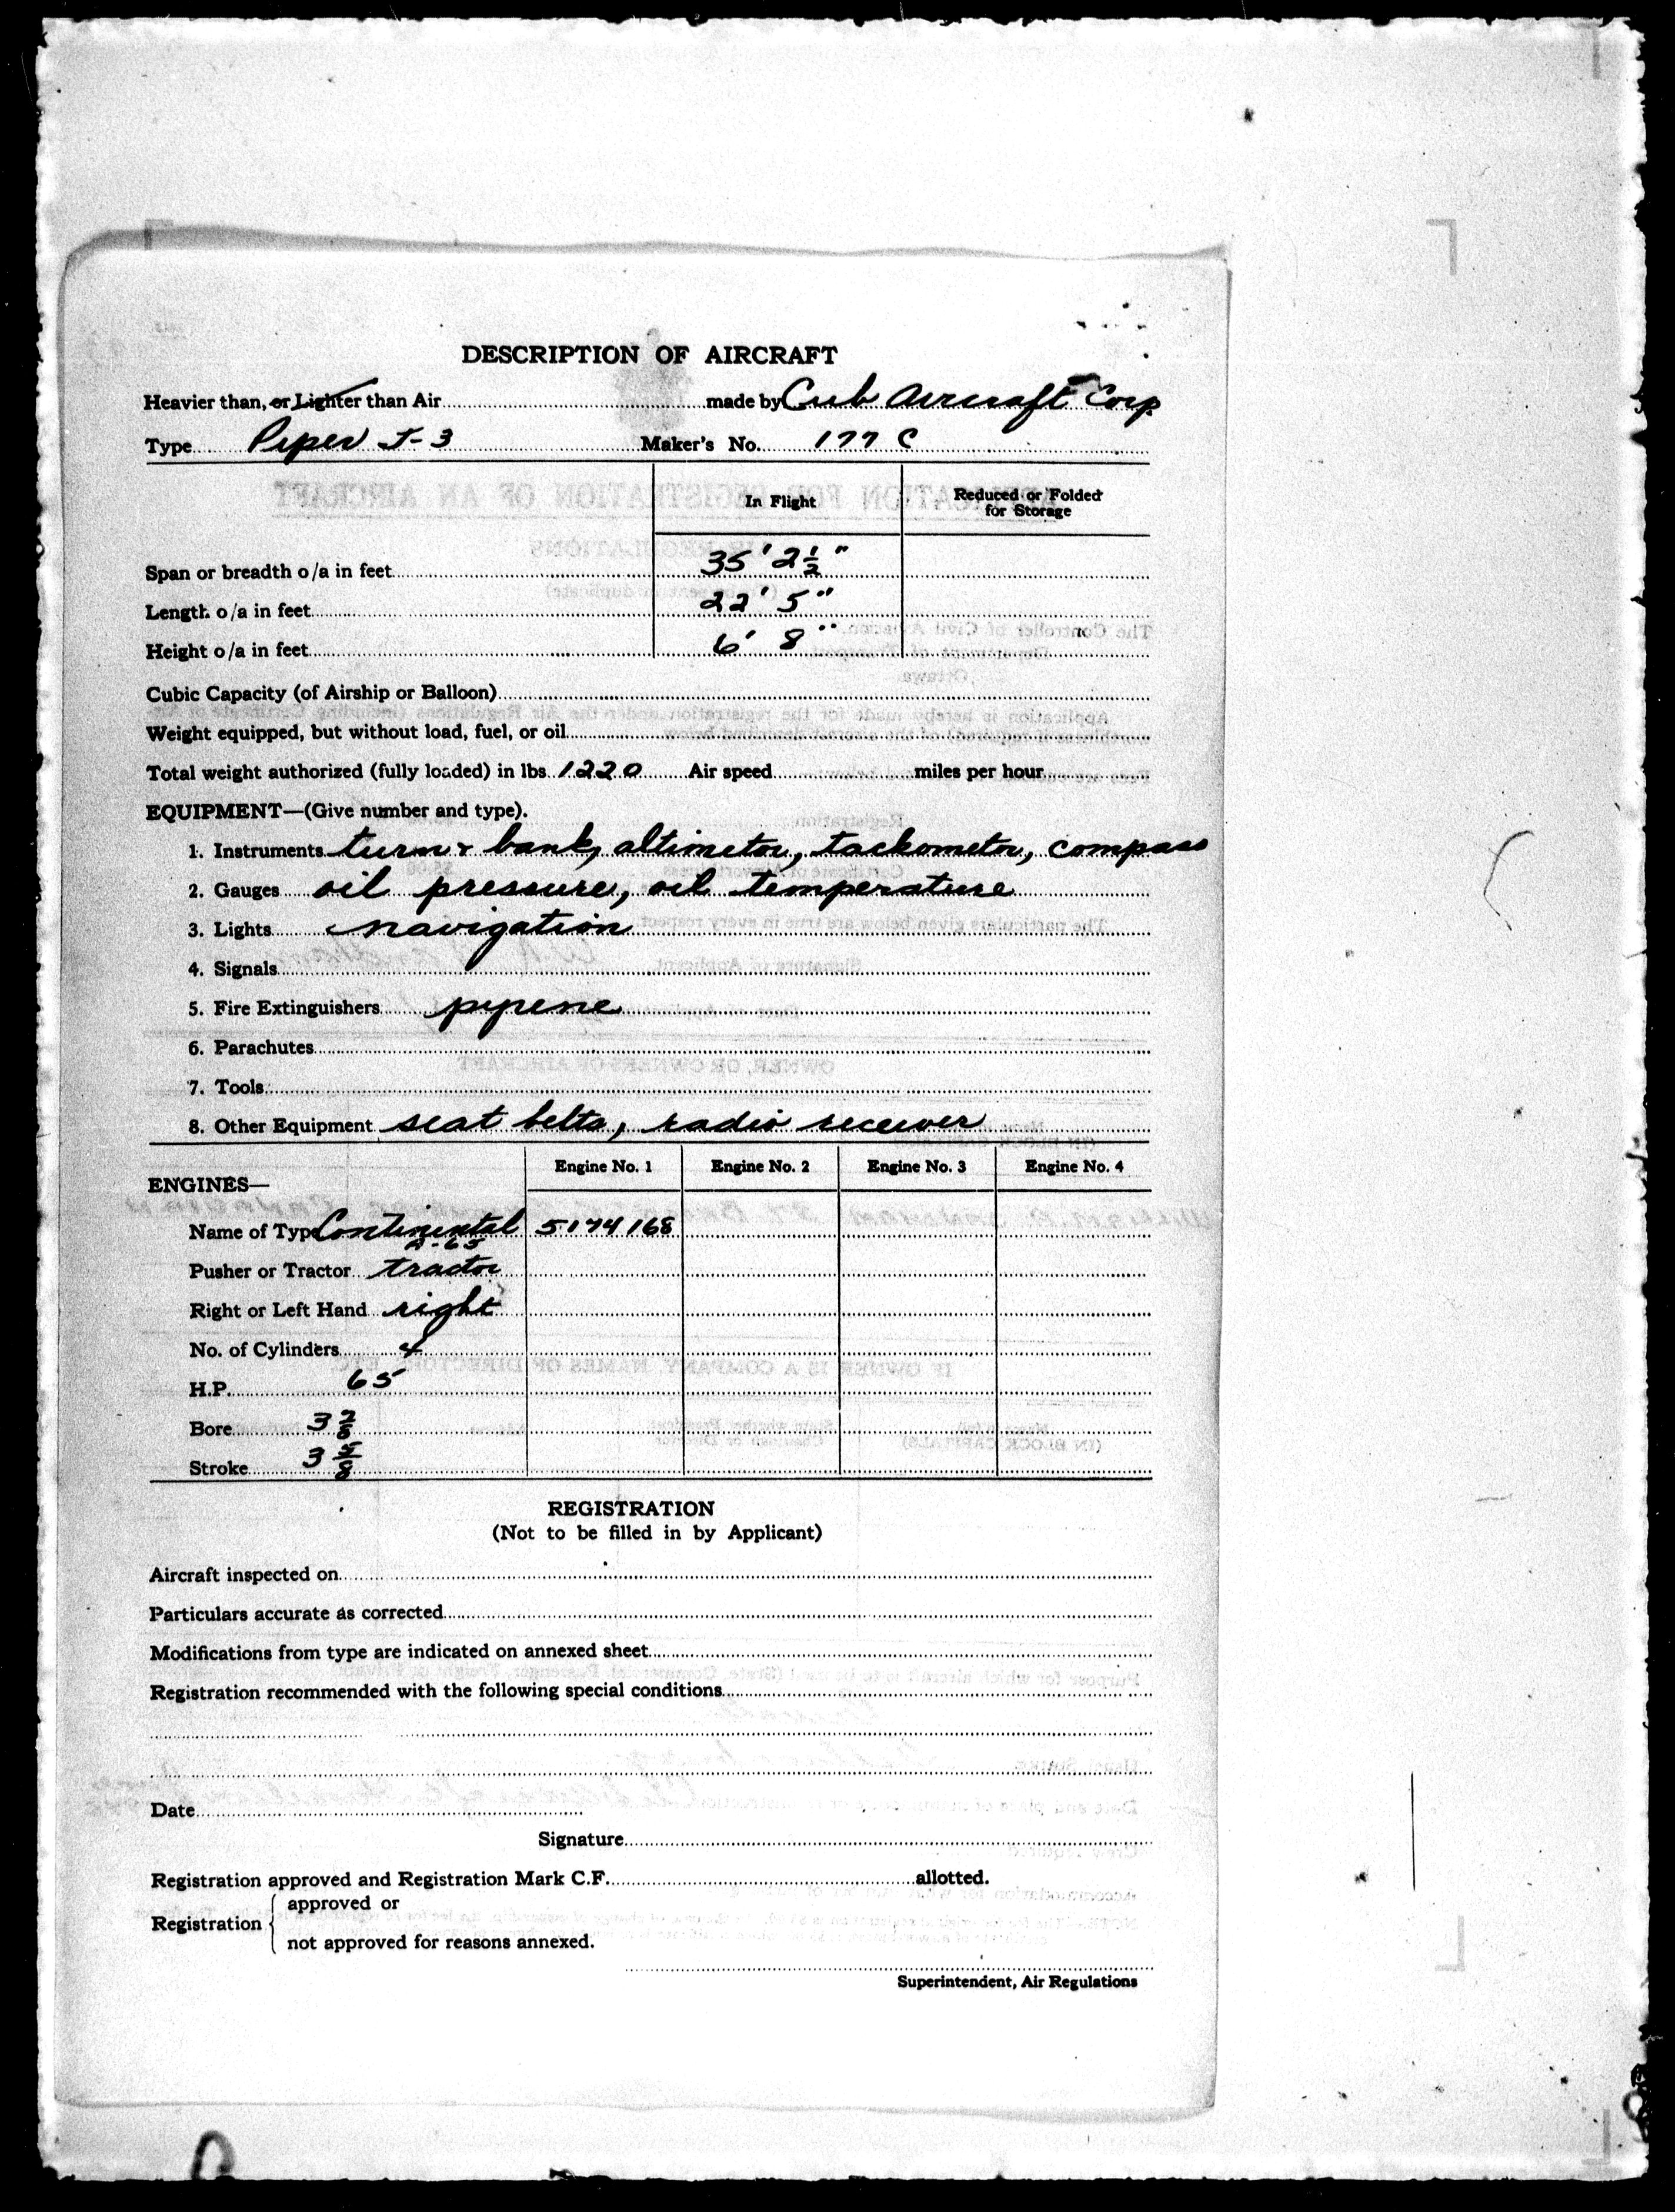 DESCRIPTION OF AIRCRAFT
Heavier than, or Lighter than Air made by Cub Aircraft Corp
Type Piper J-3 Maker's No. 177 C
In Flight Reduced or Folded
for Storage
Span or breadth o/a in feet 35' 2 1/2"
Length o/a in feet 22' 5"
Height o/a in feet 6' 8"
Cubic Capacity (of Airship or Balloon)
Weight equipped, but without load, fuel, or oil
Total weight authorized (fully loaded) in lbs. 1220 Air speed miles per hour
EQUIPMENT—(Give number and type).
1. Instruments turn & bank, altimeter, tackometer, compass
2. Gauges oil pressure, oil temperature
3. Lights navigation
4. Signals
5. Fire Extinguishers pyrene
6. Parachutes
7. Tools
8. Other Equipment seat belts, radio receiver
ENGINES— Engine No. 1 Engine No. 2 Engine No. 3 Engine No. 4
Name of Type Continental 5174168
A-65
Pusher or Tractor tractor
Right or Left Hand right
No. of Cylinders 4
H.P. 65
Bore 3 7/8
Stroke 3 5/8
REGISTRATION
(Not to be filled in by Applicant)
Aircraft inspected on
Particulars accurate as corrected
Modifications from type are indicated on annexed sheet
Registration recommended with the following special conditions
Date
Signature
Registration approved and Registration Mark C.F. allotted.
Registration { approved or
not approved for reasons annexed.
Superintendent, Air Regulations